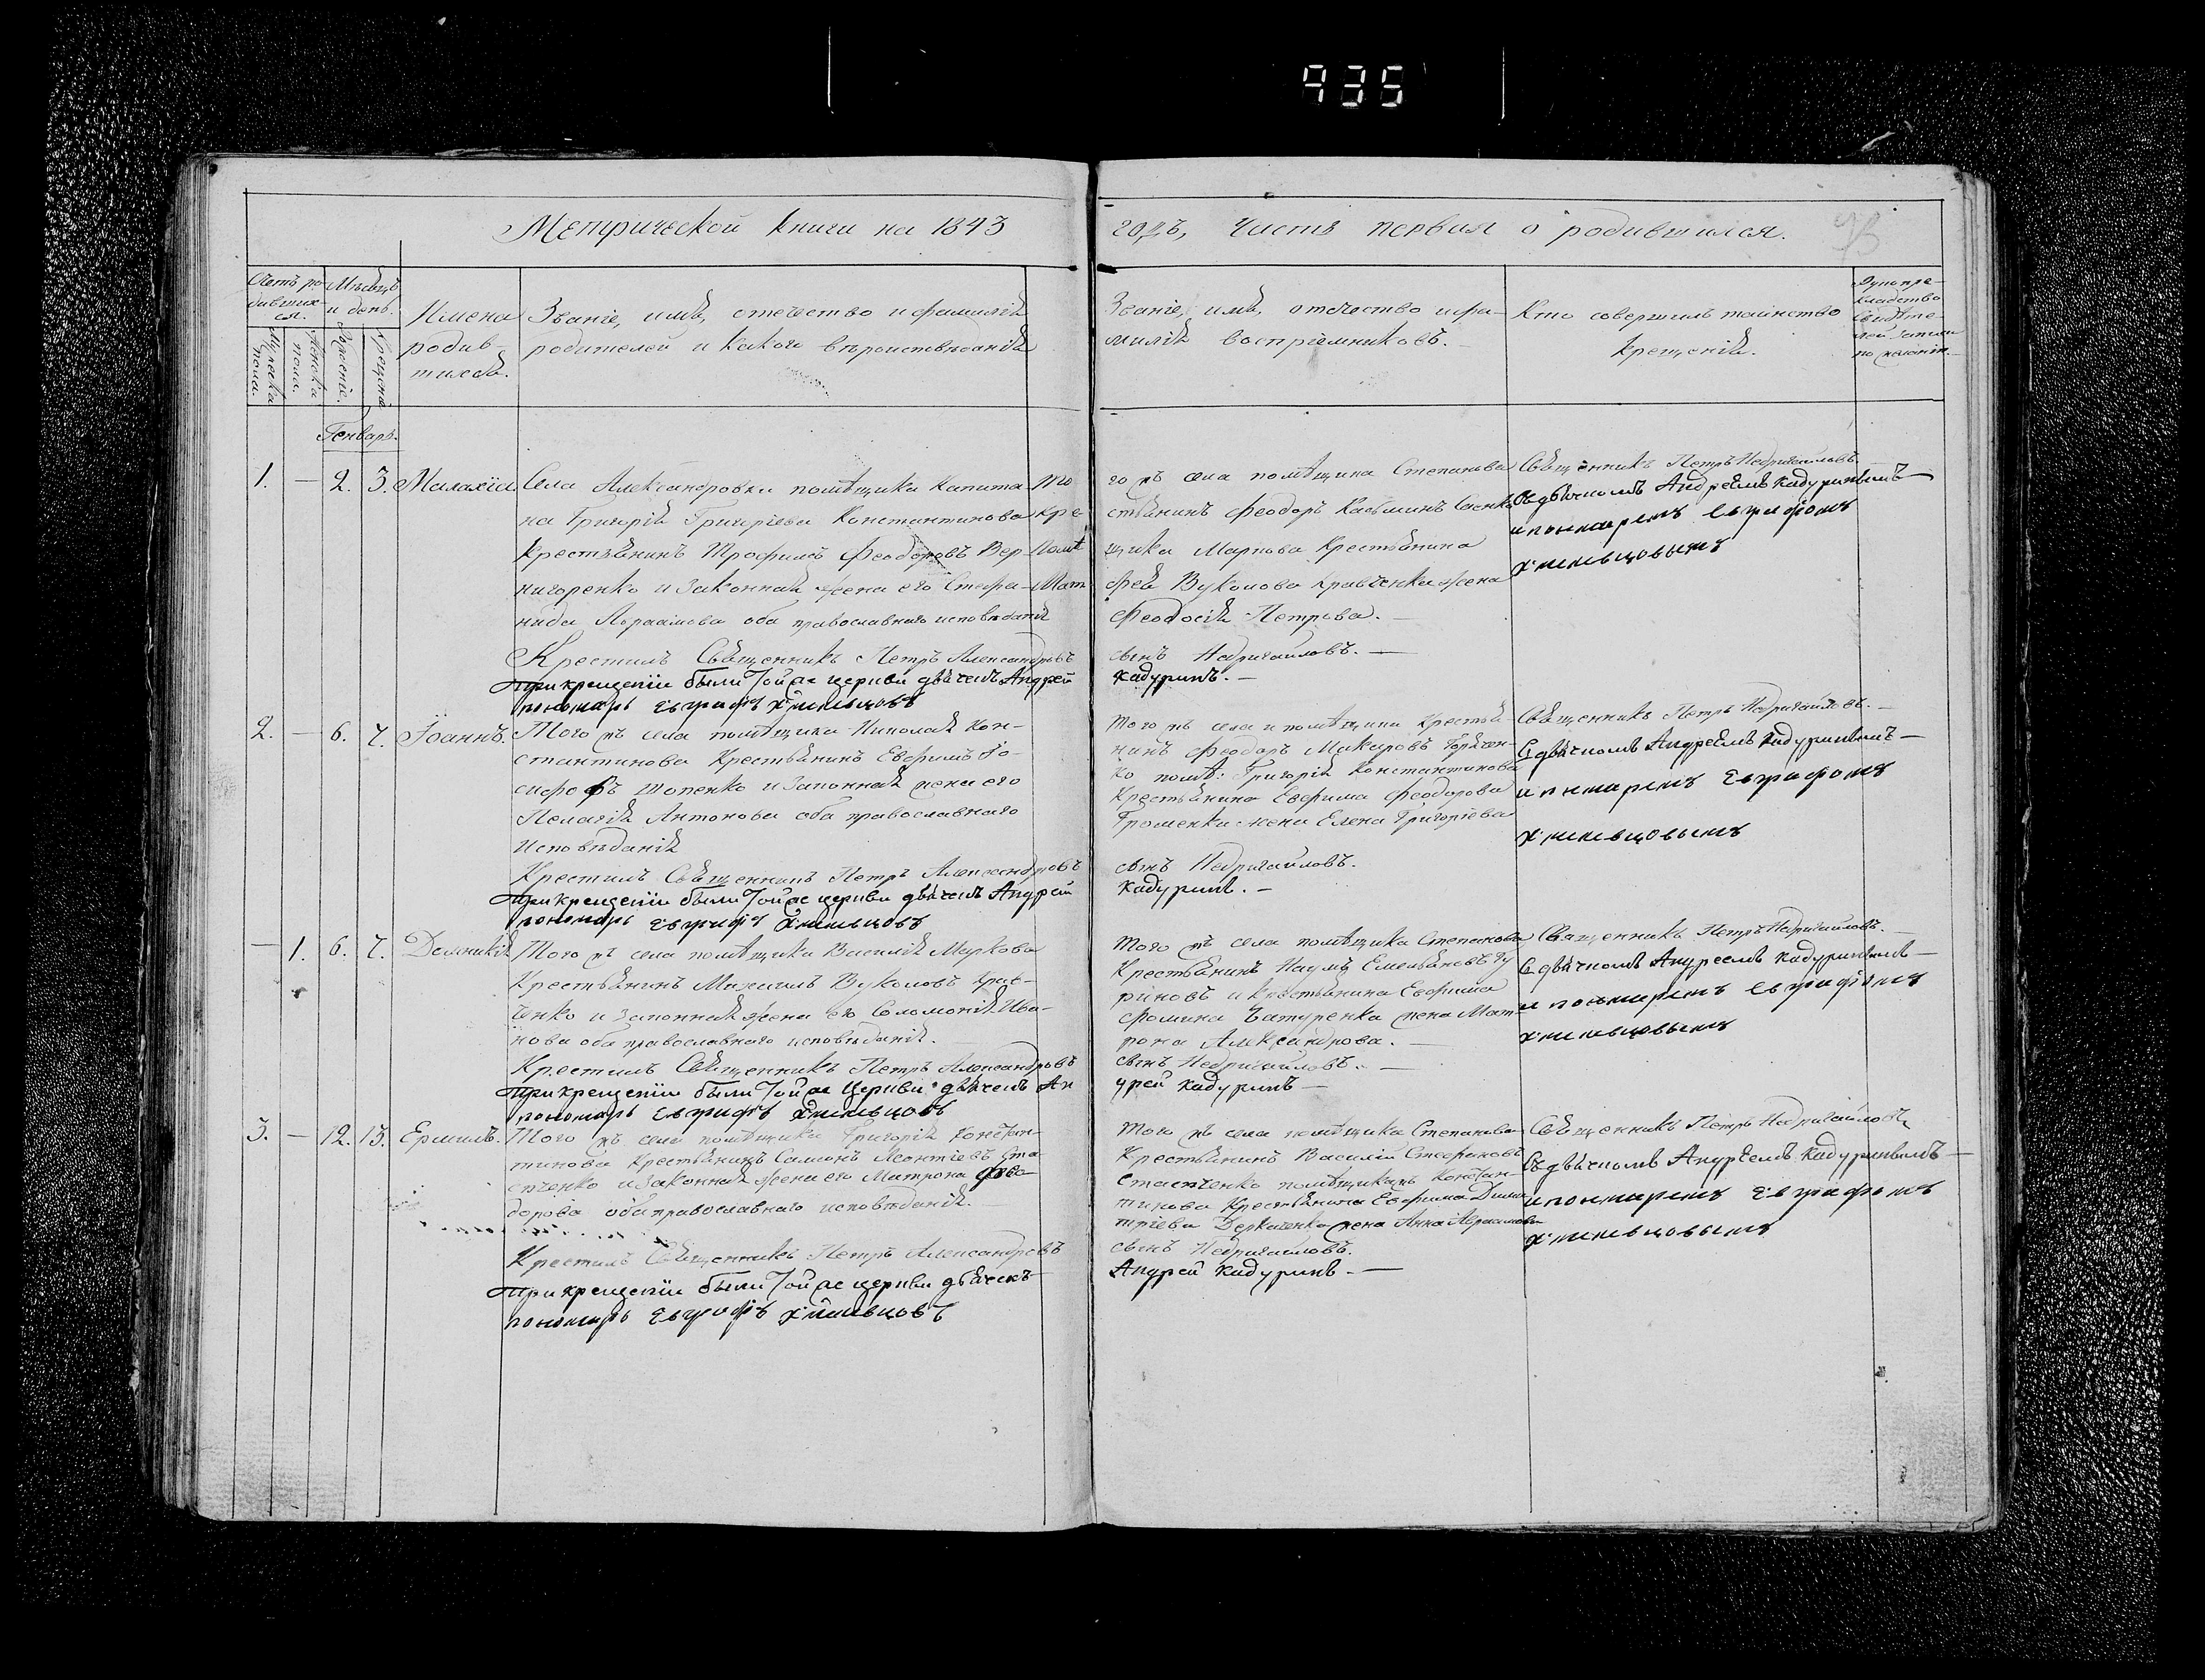 935
Метрической книги на 1843 годъ, Часть первая о родившихся.
Счетъ ро-
дивших-
ся.
Мѣсяцъ
и день.
Мужеска
пола.
Женска
пола.
Рожденіе.
Крещеніе
Имена
родив-
шихся.
Званіе, имя, отечество и фамилія
родителей и какого вѣроисповѣданія
Званіе, имя, отчество и фа-
милія воспріемниковъ.
Кто совершилъ таинство
крещенія.
Рукопри-
кладство
свидѣте-
лей записи
по желанію.
Генварь.
1. — 2. 3. Малахіа.
Села Александровки помѣщика капита-
на Григорія Григоріева Константинова
крестьянинъ Трофимъ Феодоровъ Вер-
нигоренко и законная жена его Стефа-
нида Авраамова оба православнаго исповѣданія
Крестилъ Священникъ Петръ Александровъ
При крещеніи были той же церкви дьячекъ Андрей
пономарь Евграфъ Хмельцовъ
того жъ села помѣщика Степанова
крестьянинъ Феодоръ Касьминъ
помѣщика Маркова крестьянина
Матфея Вуколова Кравченка жена
Феодосія Петрова.
сынъ Недригайловъ.
Кадуринъ.
Священникъ Петръ Недригайловъ.
Съ дьячкомъ Андреемъ Кадуринымъ
и пономаремъ Евграфомъ
Хмельцовымъ
2. — 6. 7. Іоаннъ.
Того жъ села помѣщика Николая Кон-
стантинова крестьянинъ Евфимъ Іо-
сифовъ Шопенко и законная жена его
Пелагія Антонова оба православнаго
исповѣданія
Крестилъ Священникъ Петръ Александровъ
При крещеніи были той же церкви дьячекъ Андрей
пономарь Евграфъ Хмельцовъ
того жъ села и помѣщика крестья-
нинъ Феодоръ Макаровъ Горячен-
ко помѣ: Григорія Константинова
крестьянина Евфима Феодорова
Громенка жена Елена Григоріева
сынъ Недригайловъ.
Кадуринъ.
Священникъ Петръ Недригайловъ.
Съ дьячкомъ Андреемъ Кадуринымъ
и пономаремъ Евграфомъ
Хмельцовымъ
— 1. 6. 7. Домникія
Того жъ села помѣщика Василія Маркова
крестьянинъ Михаилъ Вуколовъ Крав-
ченко и законная жена его Соломонія Ива-
нова оба православнаго исповѣданія.
Крестилъ Священникъ Петръ Александровъ
При крещеніи были той же церкви дьячекъ Ан
пономарь Евграфъ Хмельцовъ
того жъ села помѣщика Степанова
крестьянинъ Наумъ Емельяновъ Гу
риновъ и крестьянина Евфима
Фомина жена Мат-
рона Александрова.
сынъ Недригайловъ.
дрей Кадуринъ
Священникъ Петръ Недригайловъ.
Съ дьячкомъ Андреемъ Кадуринымъ
и пономаремъ Евграфомъ
Хмельцовымъ
3. — 12. 13. Ермилъ.
Того жъ села помѣщика Григорія Констан-
тинова крестьянинъ Самсонъ Леонтіевъ Ста
сенко и законная жена его Матрона Фео-
дорова оба православнаго исповѣданія.
Крестилъ Священникъ Петръ Александровъ
При крещеніи были той же церкви дьячекъ
пономарь Евграфъ Хмельцовъ
того жъ села помѣщика Степанова
крестьянинъ Василій Стефановъ
помѣщикамъ Констан-
тинова крестьянина Евфима Дими
тріева Деркаченка жена Анна Авраамова
сынъ Недригайловъ.
Андрей Кадуринъ.
Священникъ Петръ Недригайловъ
Съ дьячкомъ Андреемъ Кадуринымъ
и пономаремъ Евграфомъ
Хмельцовымъ